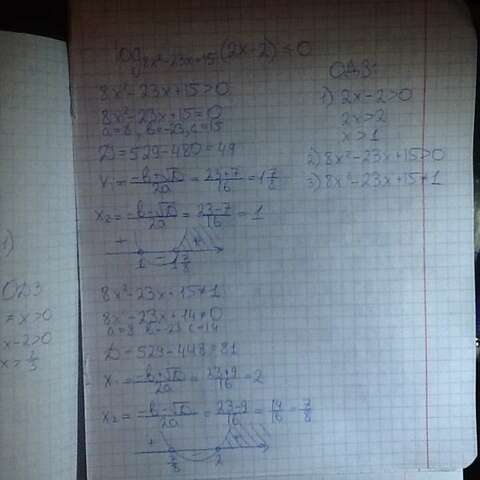 log₈ₓ²₋₂₃ₓ₊₁₅(2x-2) ≤ 0
8x²-23x+15>0
8x²-23x+15=0
a=8, b=-23, c=15
D=529-480=49
x₁=(-b+√D)/2a=(23+7)/16=1 7/8
x₂=(-b-√D)/2a=(23-7)/16=1
+ - +
1 1 7/8
8x²-23x+15≠1
8x²-23x+14≠0
a=8 b=-23 c=14
D=529-448=81
x₁=(-b+√D)/2a=(23+9)/16=2
x₂=(-b-√D)/2a=(23-9)/16=14/16=7/8
+
7/8 2
ОДЗ:
1) 2x-2>0
2x>2
x>1
2) 8x²-23x+15>0
3) 8x²-23x+15≠1
1)
ОДЗ
x>0
x-2>0